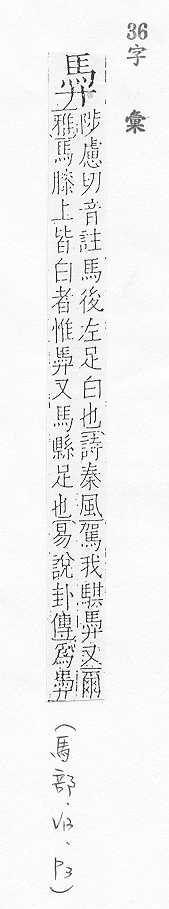 36
字彙
馵
陟慮切音註馬後左足白也詩秦風駕我騏馵又爾
雅馬膝上皆白者惟馵又馬縣足也易說卦傳爲馵
(馬部.V13.P3)